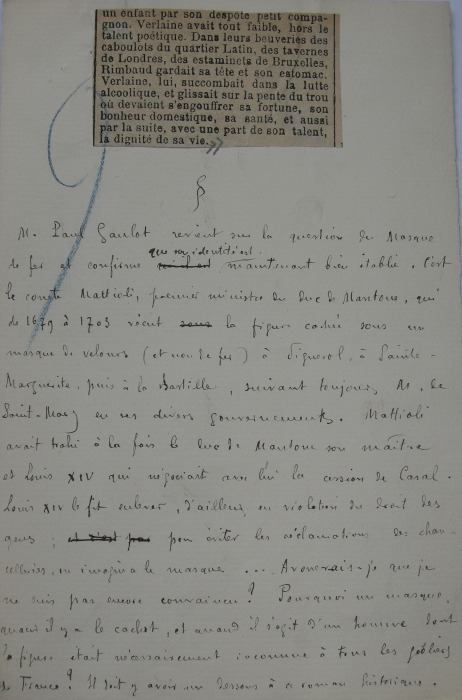 un enfant par son despote petit compa-
gnon. Verlaine avait tout faible, hors le
talent poétique. Dans leurs beuveries des
caboulots du quartier Latin, des tavernes
de Londres, des estaminets de Bruxelles,
Rimbaud gardait sa tête et son estomac.
Verlaine, lui, succombait dans la lutte
alcoolique, et glissait sur la pente du trou
où devaient s'engouffrer sa fortune, son
bonheur domestique, sa santé, et aussi
par la suite, avec une part de son talent,
la dignité de sa vie. »
§
M. Paul Gaulot revient sur la question du Masque
que son identité est
de fer et confirme maintenant bien établie. C'est
le comte Mattioli, premier ministre du duc de Mantoue, qui
de 1679 à 1703 vécut sous la figure cachée sous un
masque de velours (et non de fer) à Pignerol, à Sainte-
Marguerite, puis à la Bastille, suivant toujours M. de
Saint-Mars en ses divers gouvernements. Mattioli
avait trahi à la fois le duc de Mantoue son maître
et Louis XIV qui négociait avec lui la cession de Casal.
Louis XIV le fit enlever, d'ailleurs en violation du droit des
gens ; et c'est pas pour éviter les réclamations des chan-
celleries, on imagina le masque ... Avouerais-je que je
ne suis pas encore convaincu ? Pourquoi un masque,
quand il y a le cachot, et quand il s'agit d'un homme dont
la figure était nécessairement inconnue à tous les geôliers
de France ? Il doit y avoir un dessous à ce roman historique.